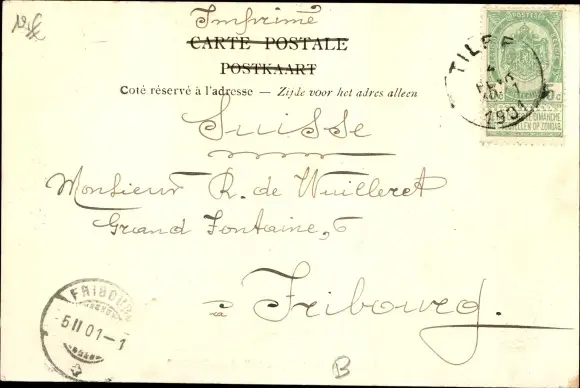 Imprimé
CARTE POSTALE
POSTKAART
Coté réservé à l'adresse — Zijde voor het adres alleen
Suisse
Monsieur R. de Wuilleret
Grand Fontaine, 6
à Fribourg.
TILFF
FEVR
1901
5c
DIMANCHE
OP ZONDAG
FRIBOURG
5 II 01-1
B